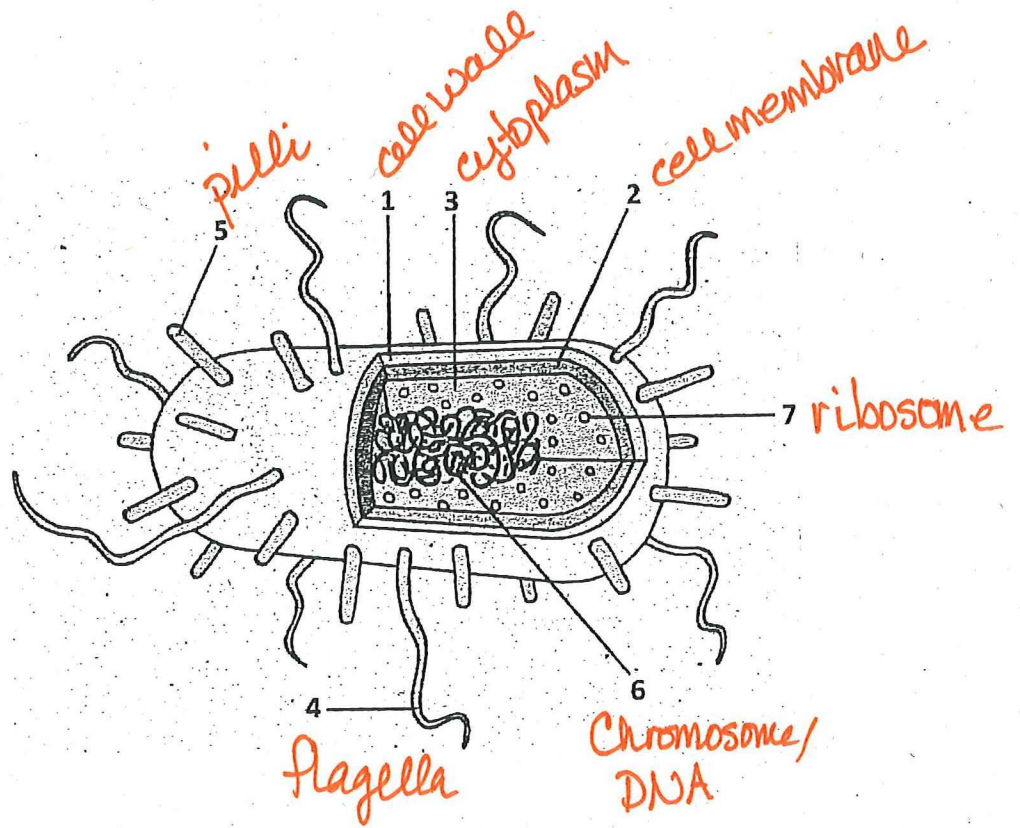 pilli
cell wall
cytoplasm
cell membrane
5
1
3
2
7 ribosome
4
flagella
6
Chromosome/
DNA